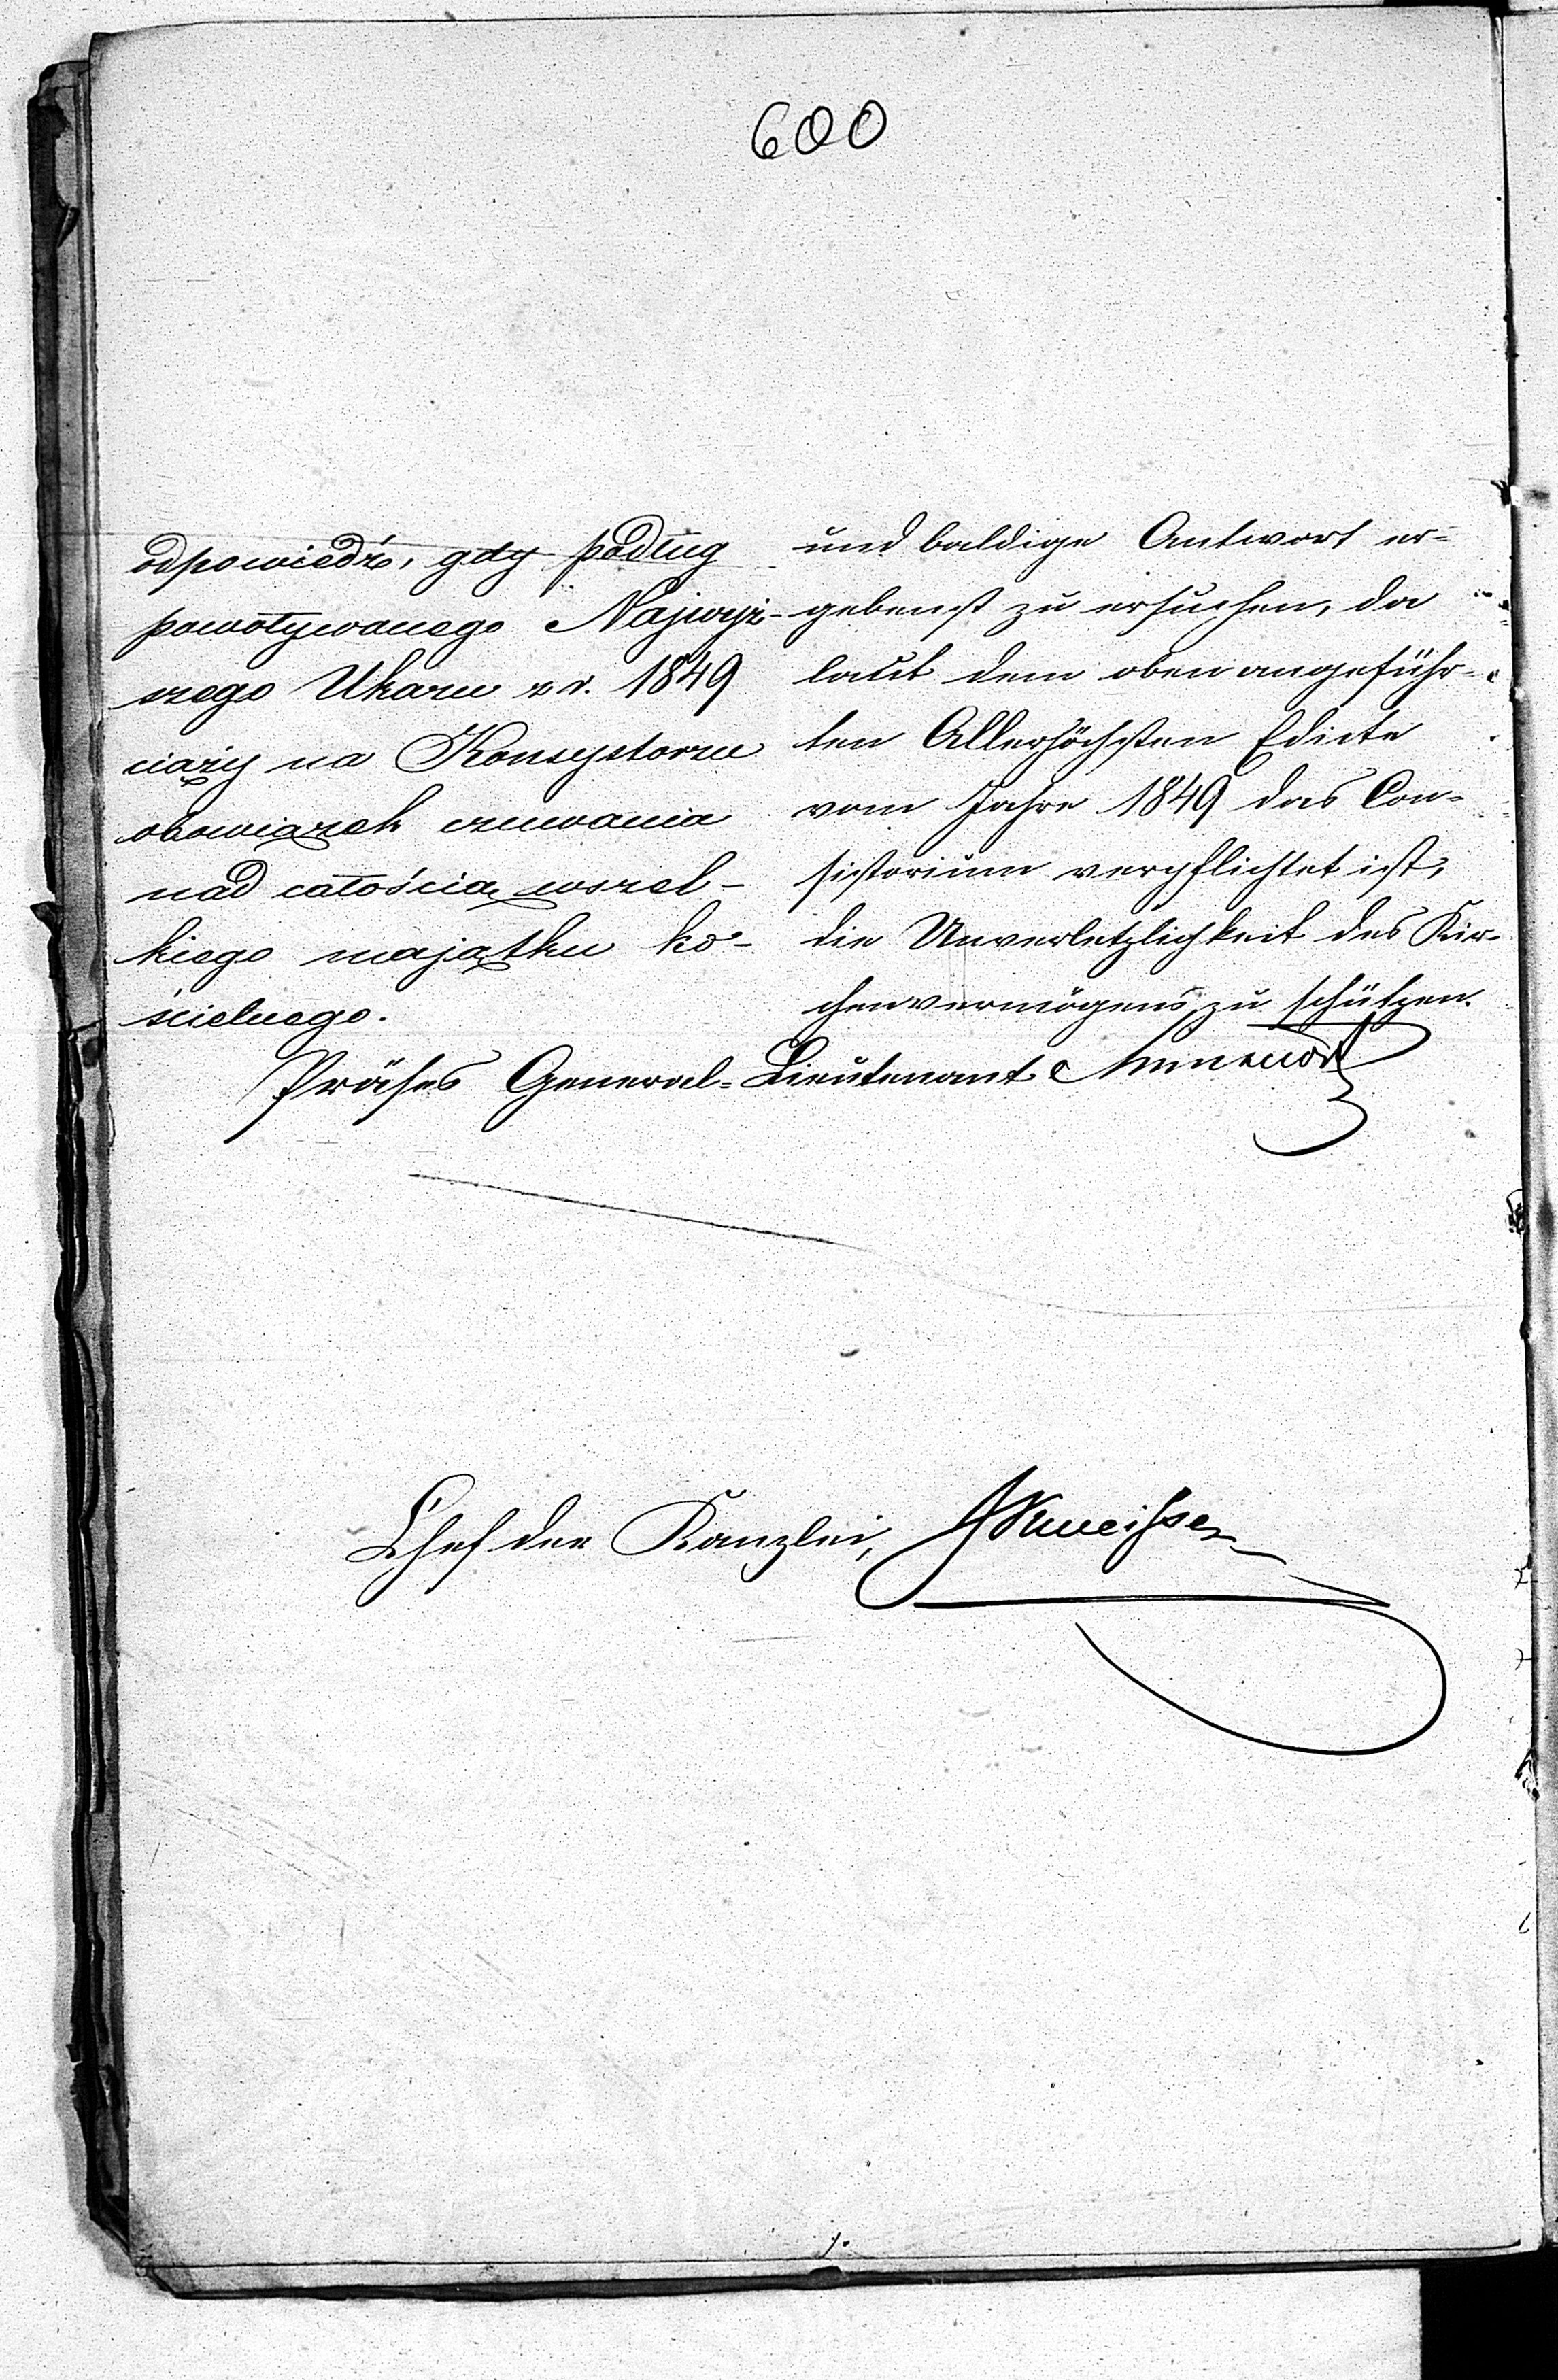 600
odpowiedź, gdy podług
powoływanego Najwyż-
szego Ukazu z r. 1849
ciąży na Konsystorzu
obowiązek czuwania
nad całością wszel-
kiego majątku ko-
ścielnego.
und baldige Antwort er-
gebenst zu ersuchen, da
laut dem oben angeführ-
ten Allerhöchsten Edicte
vom Jahre 1849 das Con-
sistorium verpflichtet ist,
die Unverletzlichkeit des Kir-
chenvermögens zu schützen.
Präses General-Lieutenant
Chef der Kanzlei,